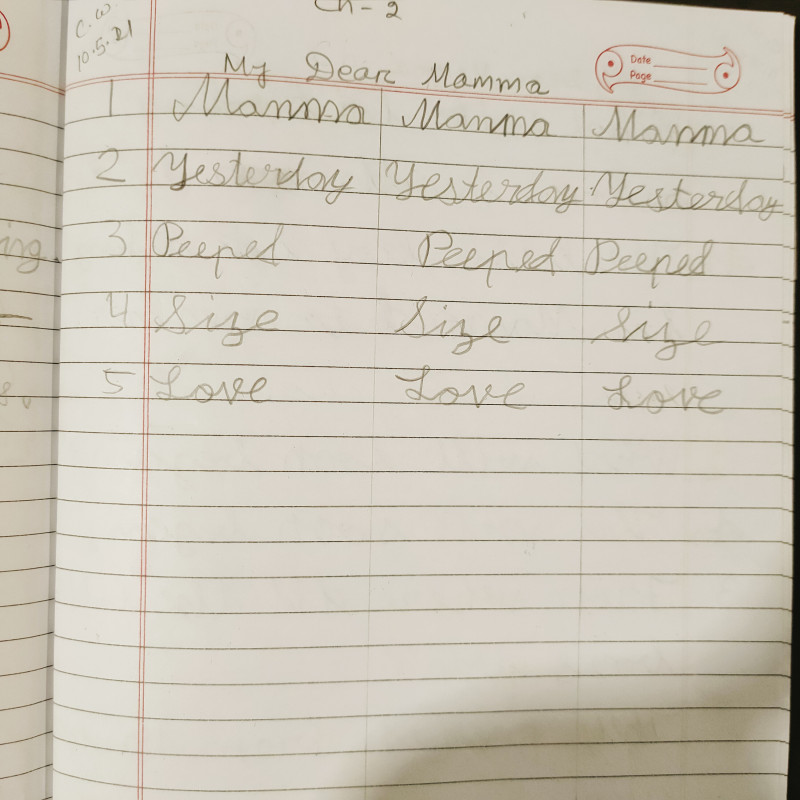 Ch - 2
C.W.
10.5.21
My Dear Mamma
Date
Page
1 Mamma Mamma Mamma
2 Yesterday Yesterday Yesterday
ing
3 Peeped Peeped Peeped
4 Size Size Size
5 Love Love Love